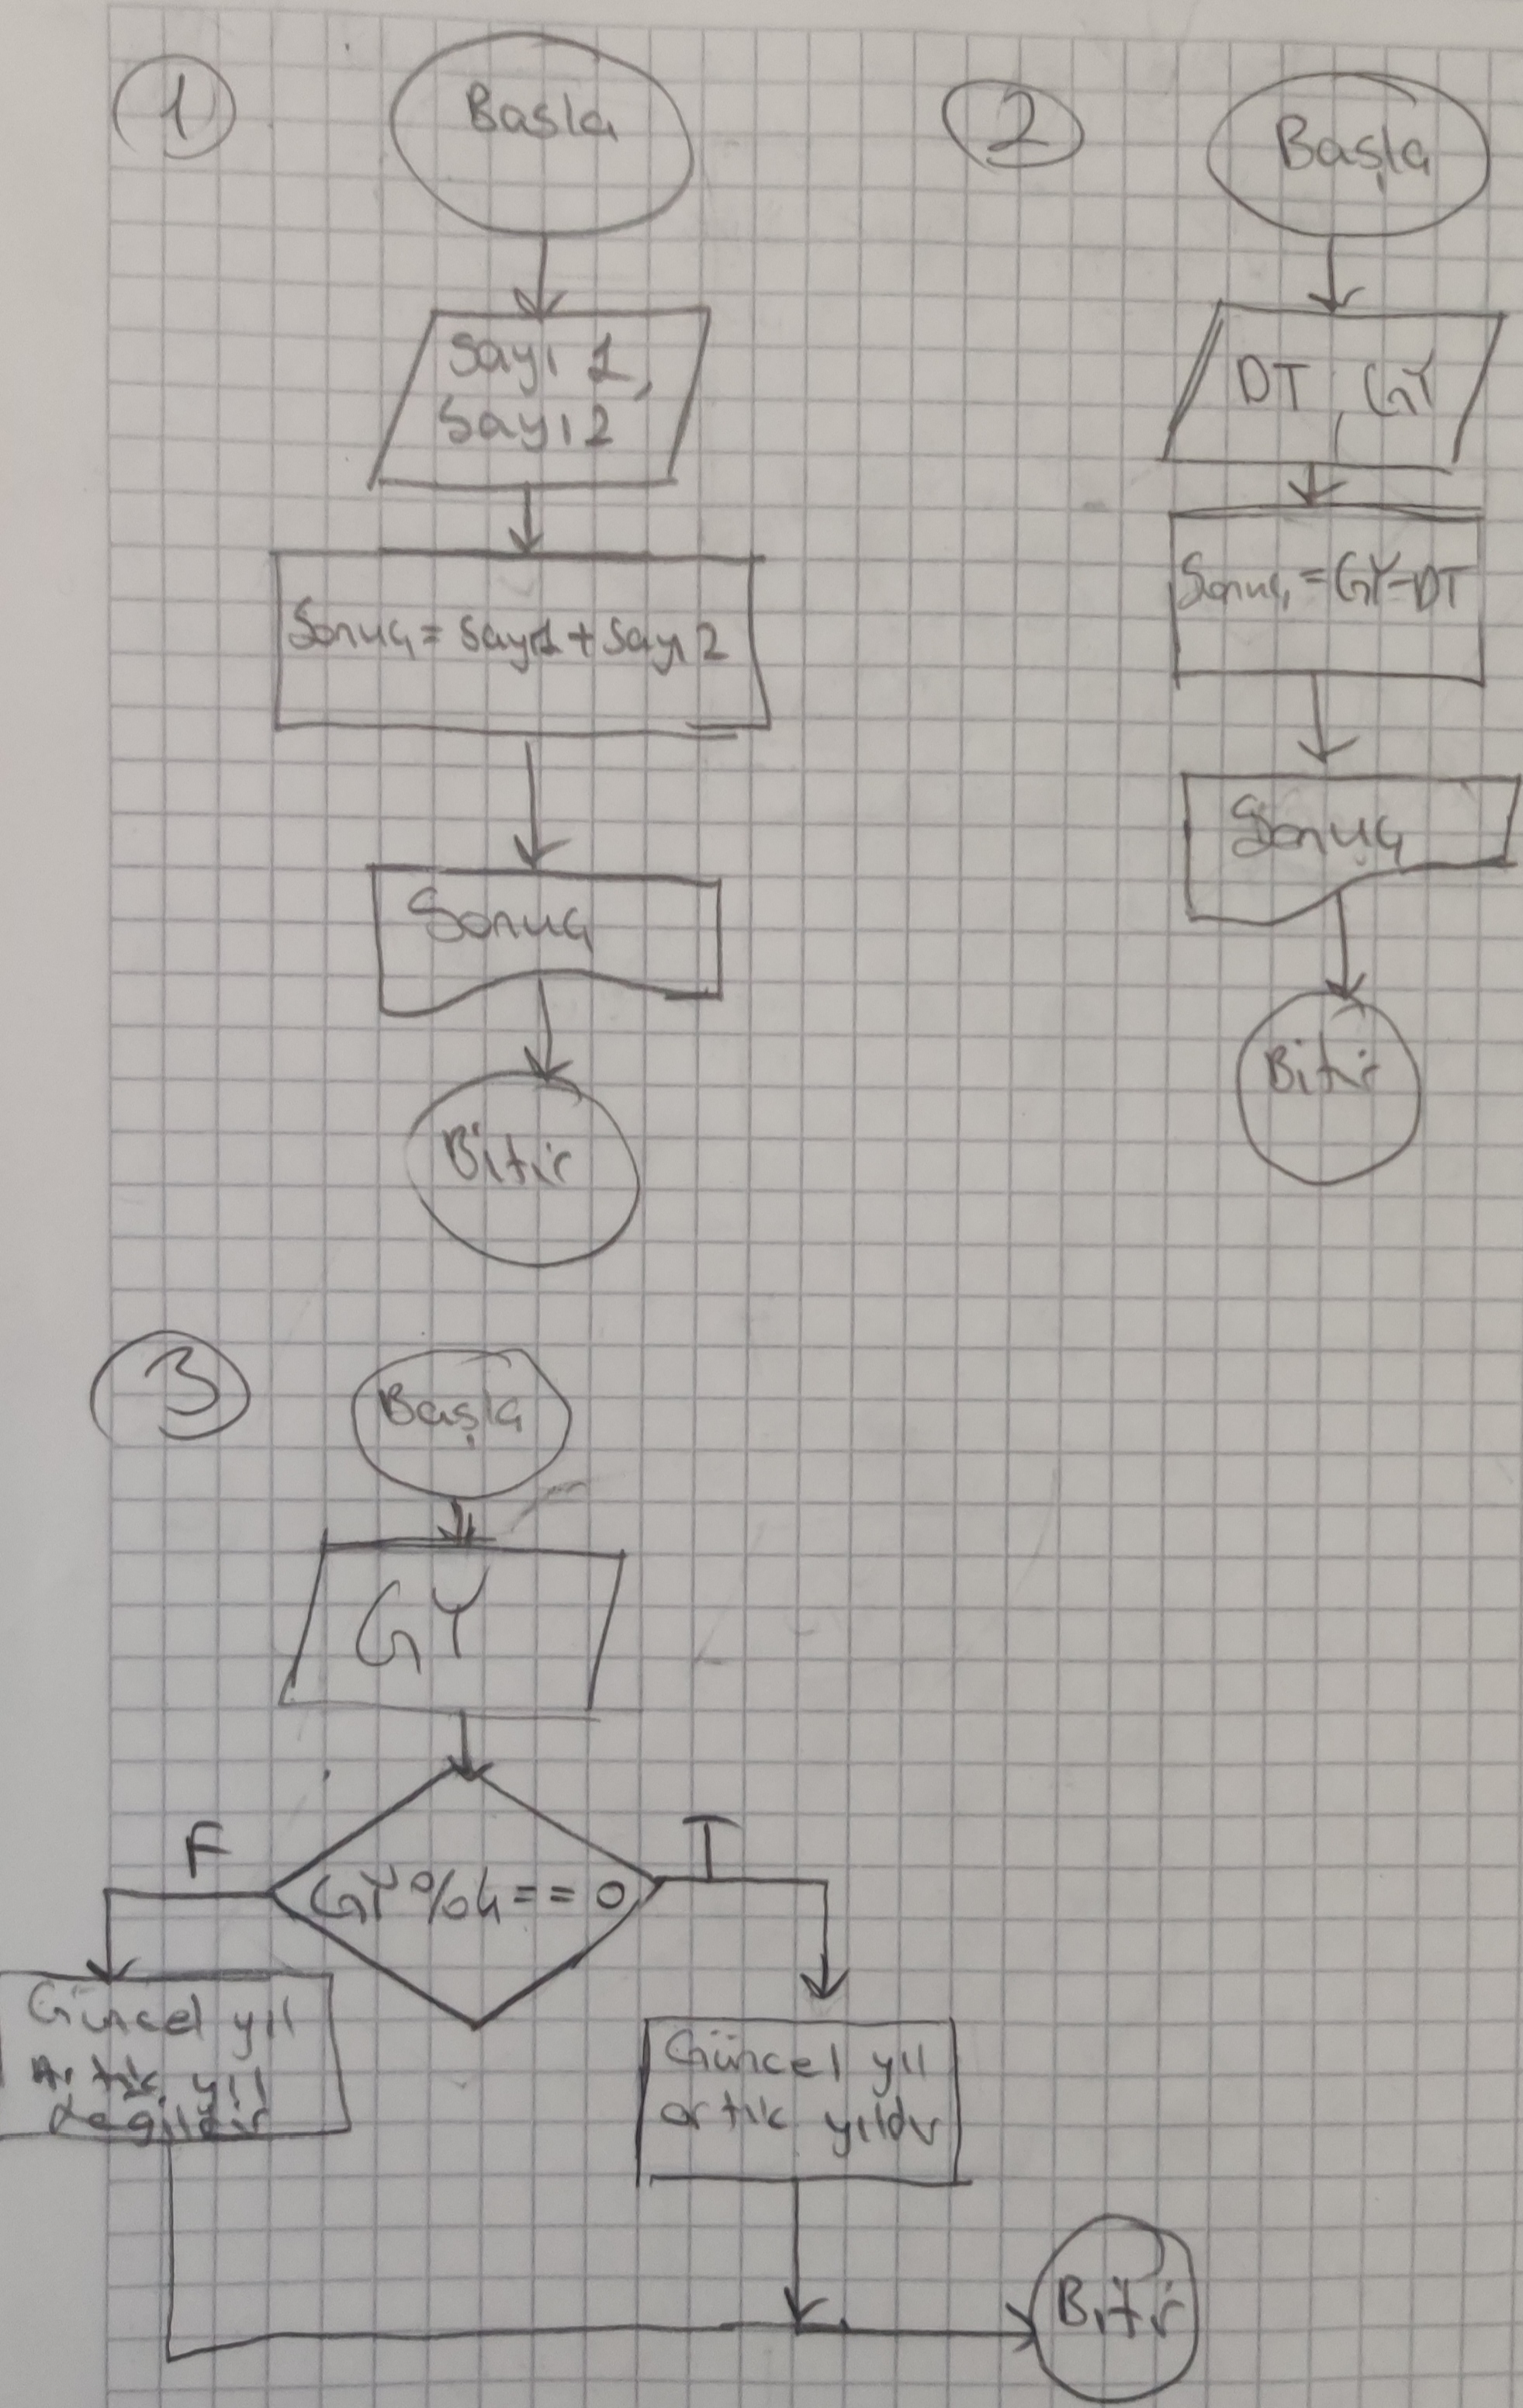 1
Basla
Sayı 1,
Sayı 2
Sonuç = Sayı1 + Sayı 2
Sonuç
Bitir
2
Başla
DT, GY
Sonuç = GY-DT
Sonuç
Bitir
3
Başla
GY
F
GY%4 == 0
T
Güncel yıl
Artık yıl
değildir
Güncel yıl
artık yıldır
Bitir